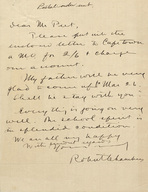 Dear Mr Peet,
Please put the
enclosed letter to Capetown
a MO for 2/6 & charge
our account.
My father will be very
glad to come of Mar 26.
Shall he stay with you.
Everything is going on very
well. The school sport is
in splendid condition.
We are all very happy
With my best yours
Robert